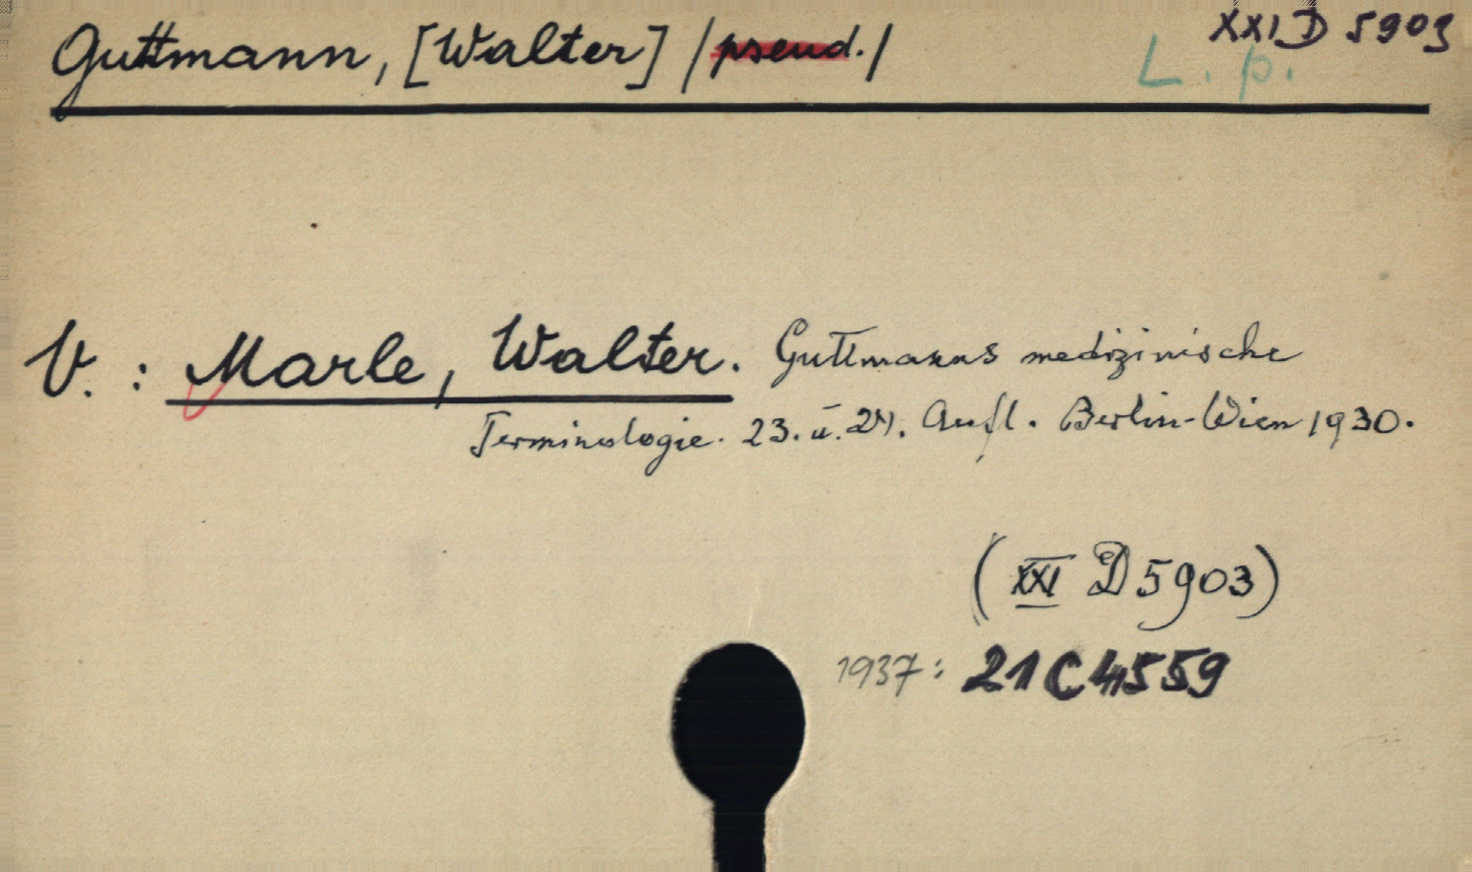 XXI D 5903
Guttmann, [Walter] /pseud./
L. p.
V. : Marle, Walter. Guttmanns medizinische
Terminologie. 23. u. 24. Aufl. Berlin-Wien 1930.
(XXI D 5903)
1937: 21 C 4559